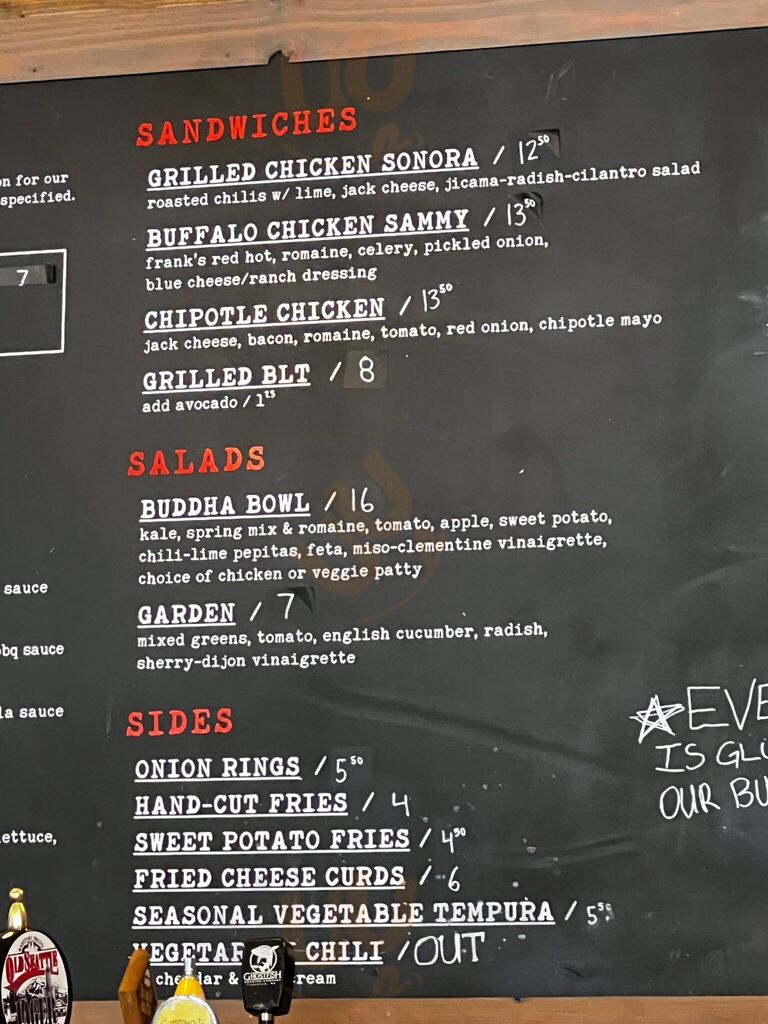 SANDWICHES
GRILLED CHICKEN SONORA / 12⁵⁰
roasted chilis w/ lime, jack cheese, jicama-radish-cilantro salad
on for our
specified.
BUFFALO CHICKEN SAMMY / 13⁵⁰
frank's red hot, romaine, celery, pickled onion,
blue cheese/ranch dressing
7
CHIPOTLE CHICKEN / 13⁵⁰
jack cheese, bacon, romaine, tomato, red onion, chipotle mayo
GRILLED BLT / 8
add avocado / 1²⁵
SALADS
BUDDHA BOWL / 16
kale, spring mix & romaine, tomato, apple, sweet potato,
chili-lime pepitas, feta, miso-clementine vinaigrette,
choice of chicken or veggie patty
sauce
GARDEN / 7
mixed greens, tomato, english cucumber, radish,
sherry-dijon vinaigrette
bq sauce
la sauce
SIDES
EVE
IS GLU
OUR BU
ONION RINGS / 5⁵⁰
HAND-CUT FRIES / 4
SWEET POTATO FRIES / 4⁵⁰
ettuce,
FRIED CHEESE CURDS / 6
SEASONAL VEGETABLE TEMPURA / 5⁵⁰
CHILI / OUT
& cream
OLD SEATTLE
LAGER
GHOSTFISH